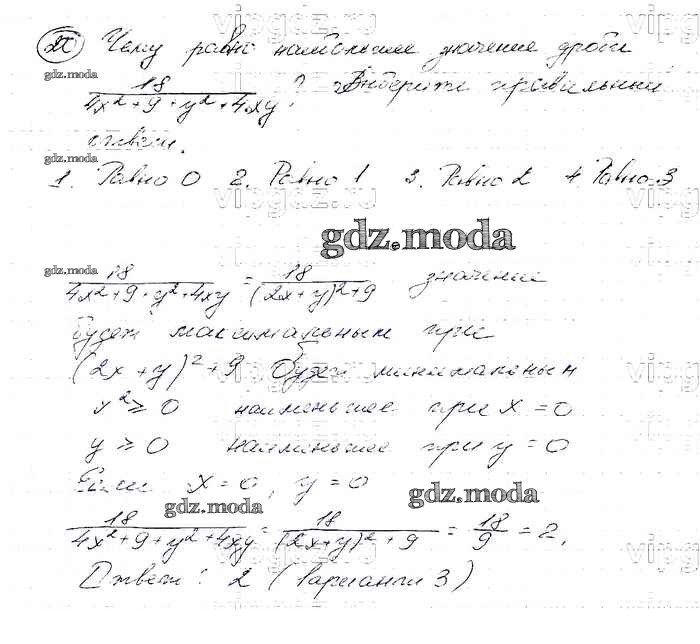 Чему равно наибольшее значение дроби
18 / 4x² + 9 + y² + 4xy ? Выберите правильный
ответ.
1. Равно 0 2. Равно 1 3. Равно 2 4. Равно 3
gdz.moda
18 / 4x² + 9 + y² + 4xy = 18 / (2x + y)² + 9 значение
будет максимальным при
(2x + y)² + 9 будет минимальным
x² ≥ 0 наименьшее при x = 0
y ≥ 0 наименьшее при y = 0
Если x = 0, y = 0
gdz.moda gdz.moda
18 / 4x² + 9 + y² + 4xy = 18 / (2x + y)² + 9 = 18 / 9 = 2.
Ответ: 2 (вариант 3)